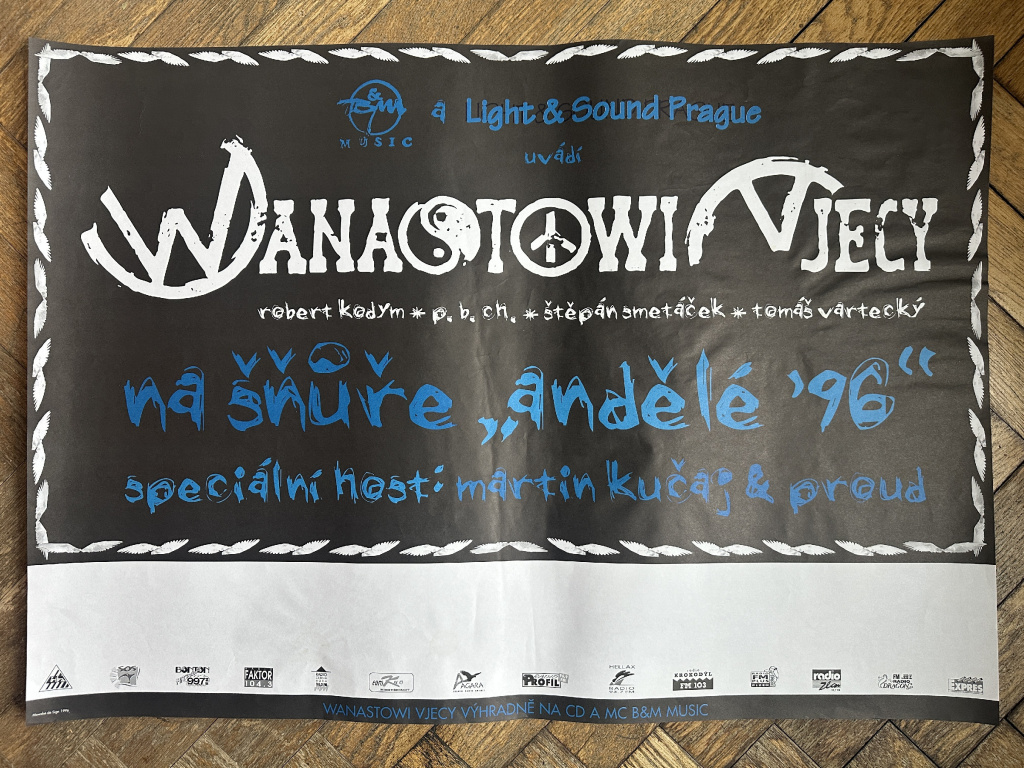 B&M MUSIC a Light & Sound Prague
uvádí
WANASTOWI VJECY
robert kodym * p. b. ch. * štěpán smetáček * tomáš vartecký
na šňůře „andělé '96“
speciální host: martin kučaj & proud
SOS
BONTON
99.7 FM
FAKTOR
104.3
AGARA
PROFIL
HELLAX
RADIO
KROKODÝL
FM 103
FM
radio
Zlín
FM
RADIO
DRAGON
EXPRES
WANASTOWI VJECY VÝHRADNĚ NA CD A MC B&M MUSIC